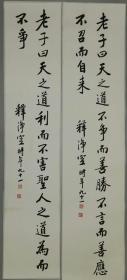 老子曰天之道不爭而善勝不言而善應
不召而自来
釋淨空時年九十一
老子曰天之道利而不害聖人之道為而
不爭
釋淨空時年九十一